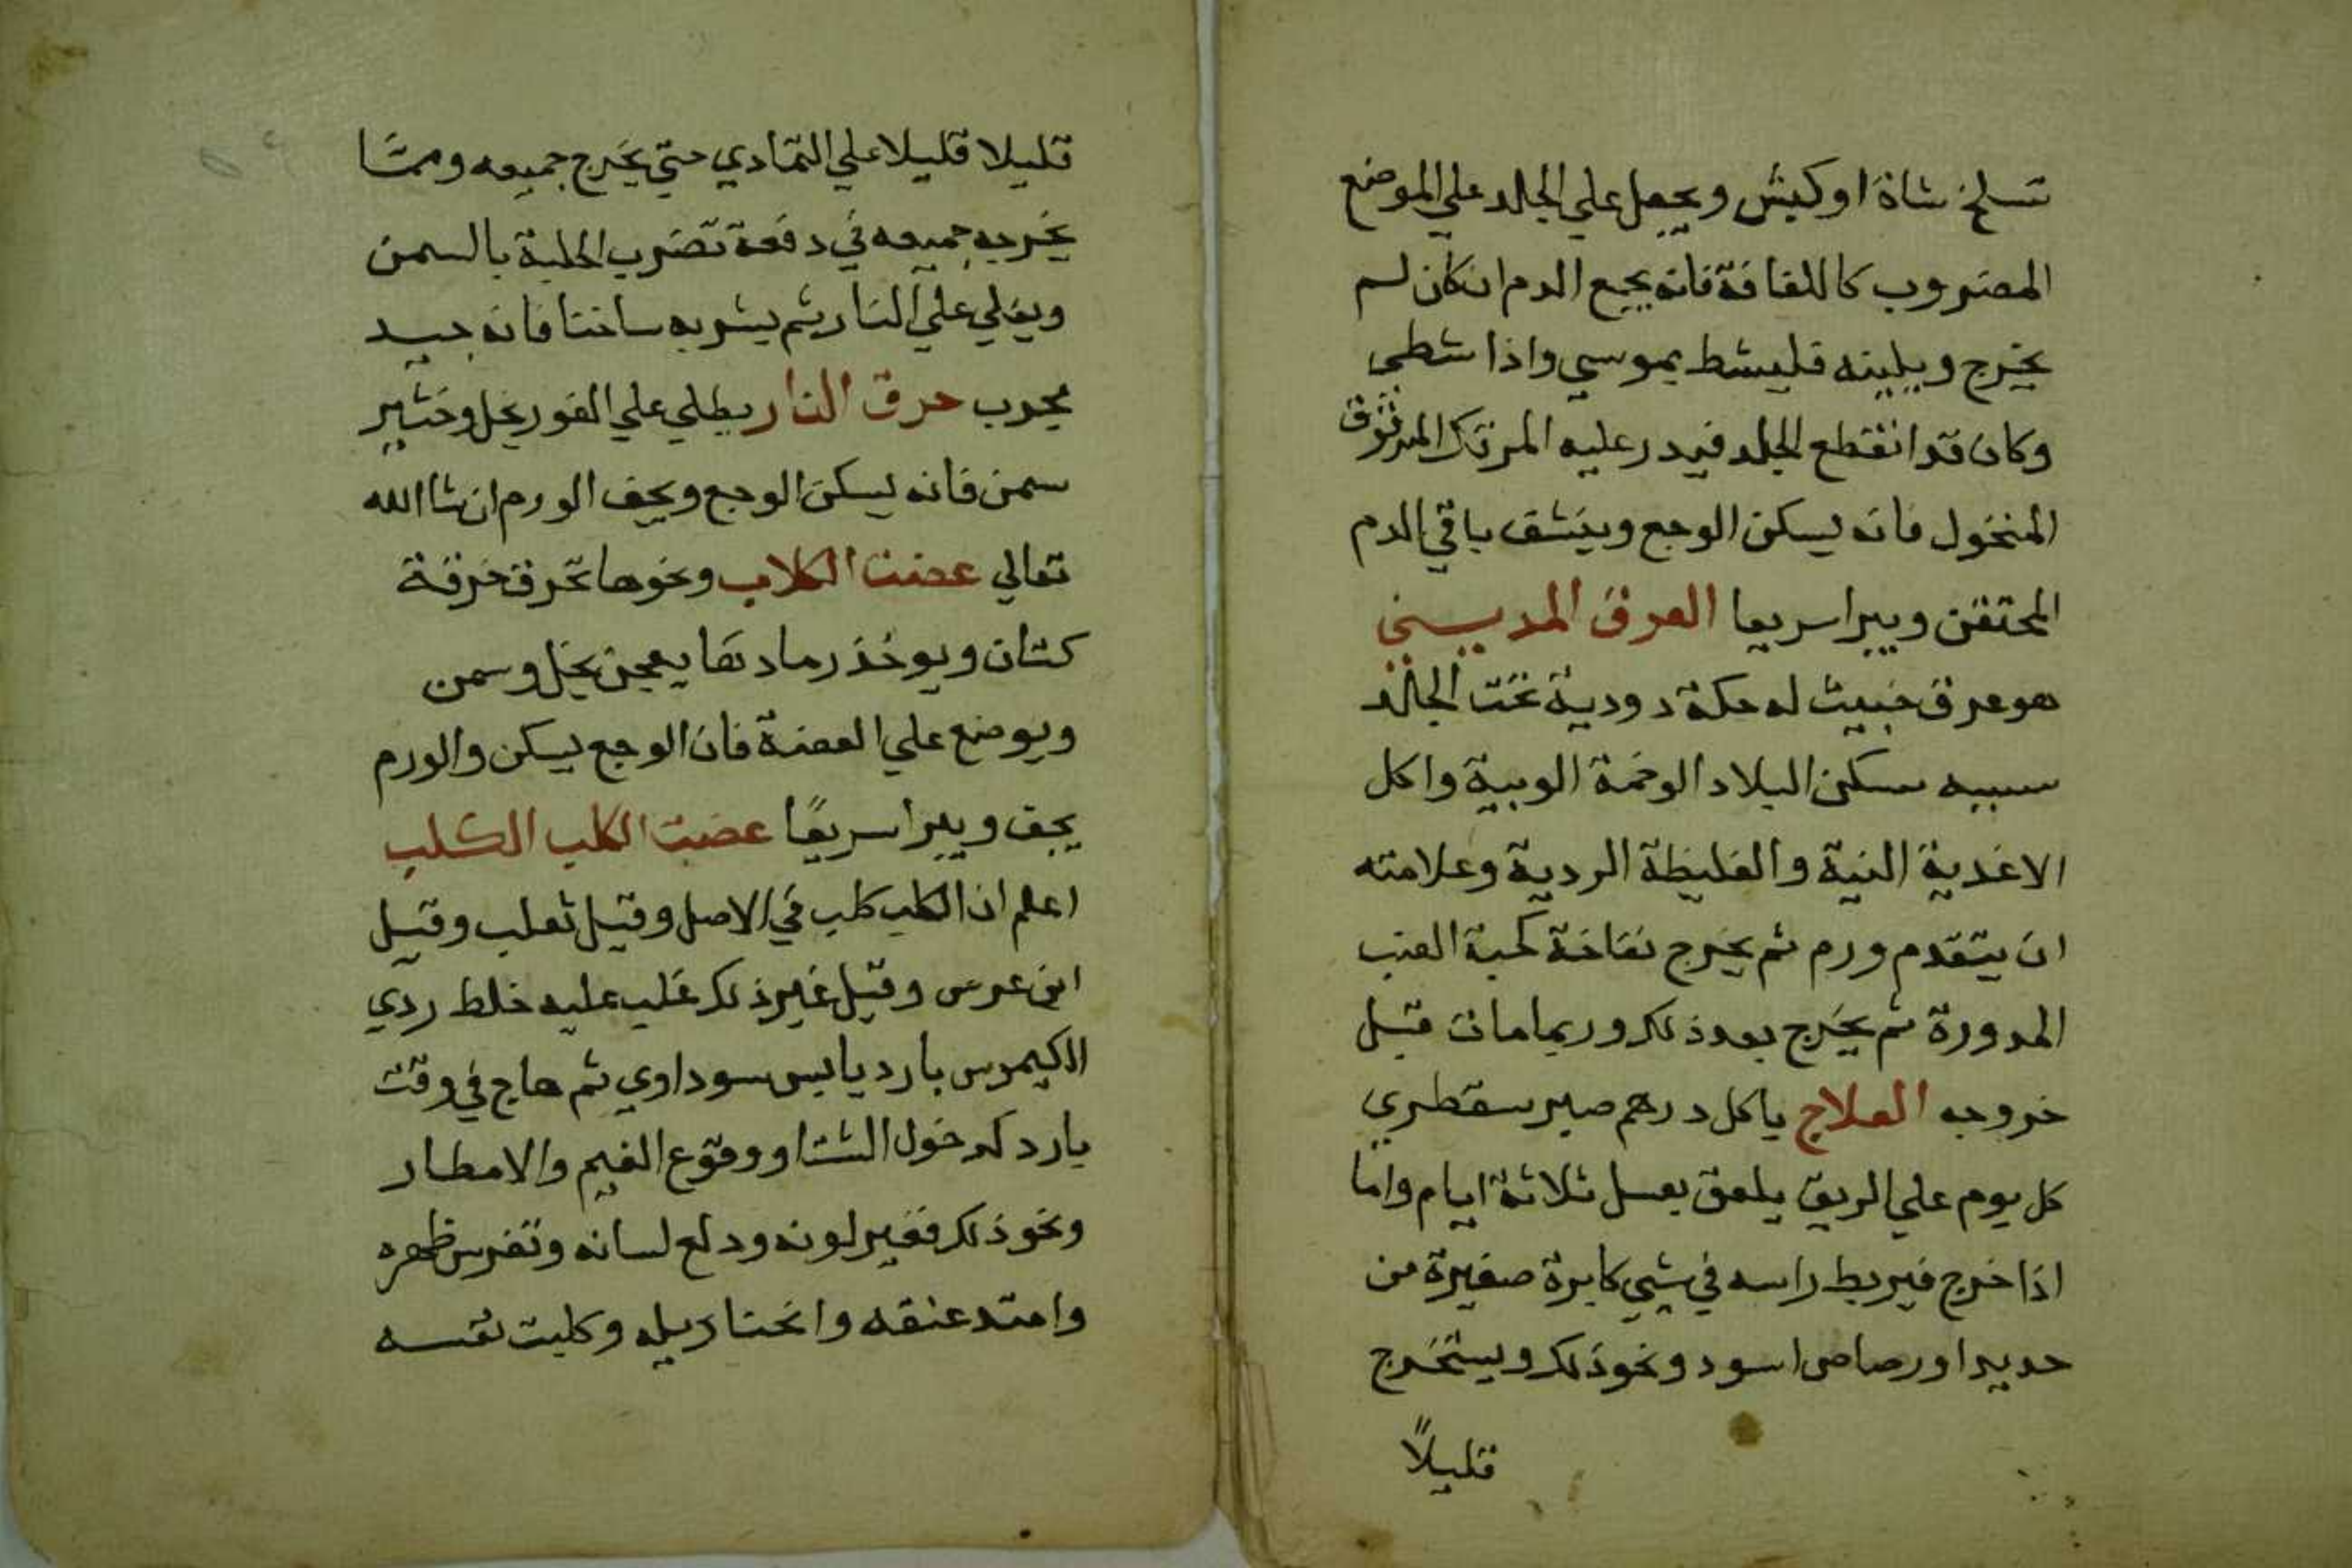 تسلخ شاة او كبش ويجعل علي الجلد علي الموضع
المضروب كاللفافة فانه يجمع الدم انكان لم
يخرج ويلينه فليشط بموسي واذا شطى
وكان قد انقطع الجلد فيدر عليه المرتك المدقوق
المنخول فانه ليسكن الوجع وينشف باقي الدم
المحتقن ويبرا سريعا العرق المديني
هو عرق خبيث له حكة دودية تحت الجلد
سببه سكن البلاد الوخمة الوبية واكل
الاغدية النية والغليظة الردية وعلامته
ان يتقدم ورم ثم يخرج نفاخة كحبة العنب
المدورة ثم يخرج بعد ذلك وربما مات قبل
خروجه العلاج ياكل درهم صبر سقطري
كل يوم علي الريق يلعق بعسل ثلاثة ايام واما
اذا خرج فيربط راسه في شي كابرة صغيرة من
حديد او رصاص اسود ونحو ذلك ويستخرج
قليلاً
قليلا قليلا علي التمادي حتي يخرج جميعه ومما
يخرجه جميعه في دفعة تضرب الحلبة بالسمن
ويغلي علي النار ثم يشربه ساخنا فانه جيد
مجرب حرق النار يطلي علي الفور بخل وخثير
سمن فانه ليسكن الوجع ويجف الورم ان شا الله
تعالي عضت الكلاب ونحوها تحرق خرقة
كتان ويوخذ رمادها يعجن بخل وسمن
ويوضع علي العضة فان الوجع ليسكن والورم
يجف ويبرا سريعًا عضت الكلب الكلب
اعلم ان الكلب كلب في الاصل وقيل ثعلب وقيل
ابن عرس وقيل غير ذلك غلب عليه خلط ردي
الكيموس بارد يابس سوداوي ثم هاج في وقت
بارد كدخول الشتا ووقوع الغيم والامطار
ونحو ذلك فغير لونه ودلع لسانه وتقرس ظهره
وامتد عنقه وانحنا ديله وكلبت نفسه